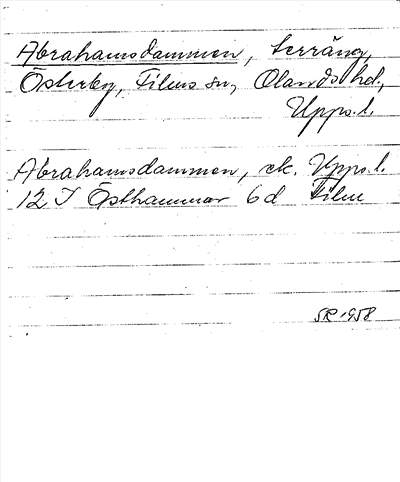 Abrahamsdammen, terräng,
Österby, Films sn, Olands hd,
Upps. l.
Abrahamsdammen, ek. Upps. l.
12 I Östhammar 6d Film
SR 1958